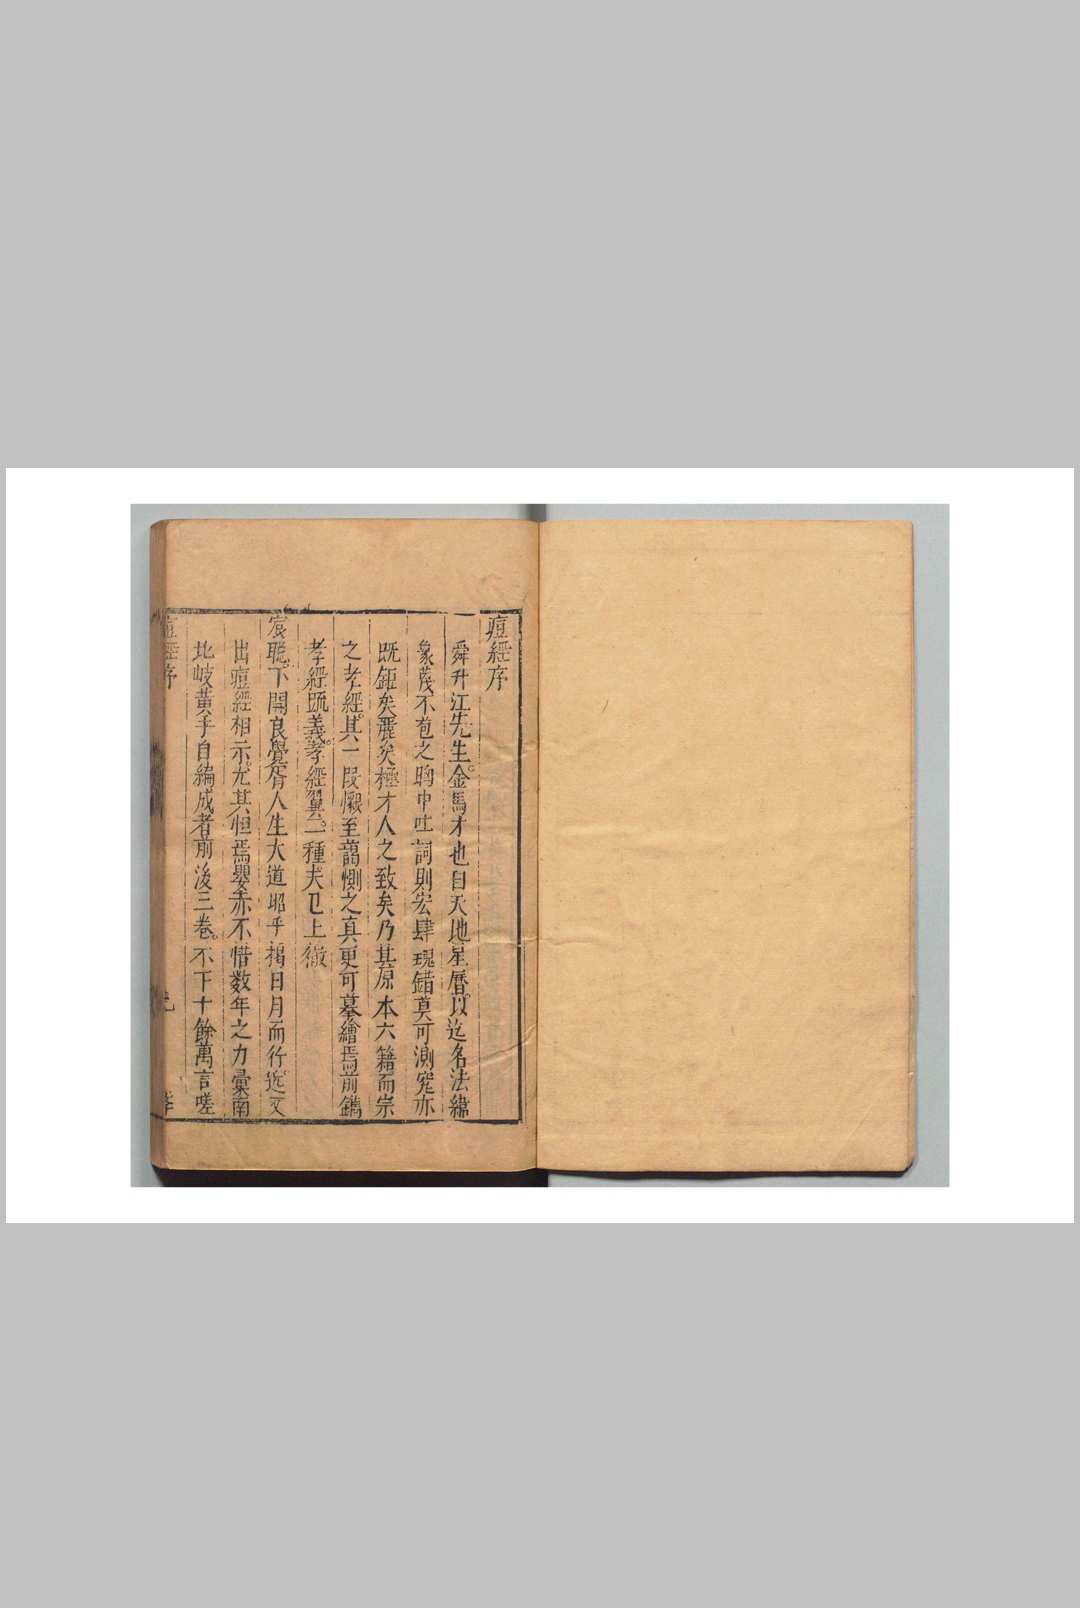 痘經序
舜升江先生。金馬才也自天地星曆。以迄名法緯
象蔑不苞之胸中吐詞則宏肆瑰錯莫可測窕亦
既鉅矣麗矣極才人之致矣乃其原本六籍而崇
之孝經。其一段懇至藹惻之真更可摹繪焉前鐫
孝經疏義。孝經翼。一種夫已上徹
宸聰。下開良覺胥人生大道昭乎揭日月而行。迄又
出痘經相示。尤其怛焉嬰赤不惜数年之力彚南
北岐黃手自編成者前後三卷。不下十餘萬言嗟
痘經序